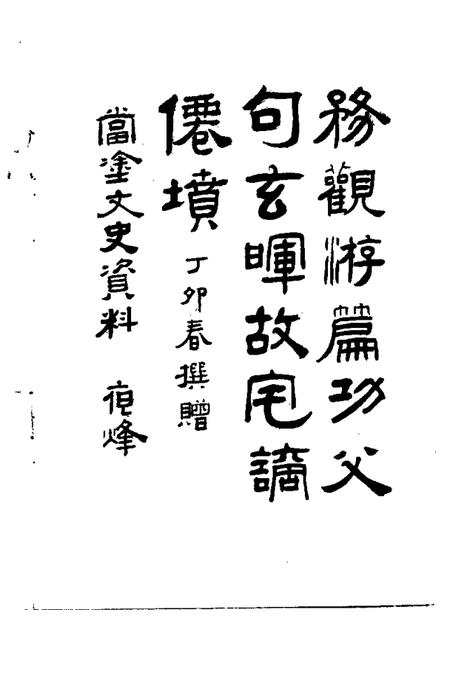 務觀游篇功父
句玄暉故宅謫
僊墳
丁卯春撰贈
當塗文史資料 宿烽